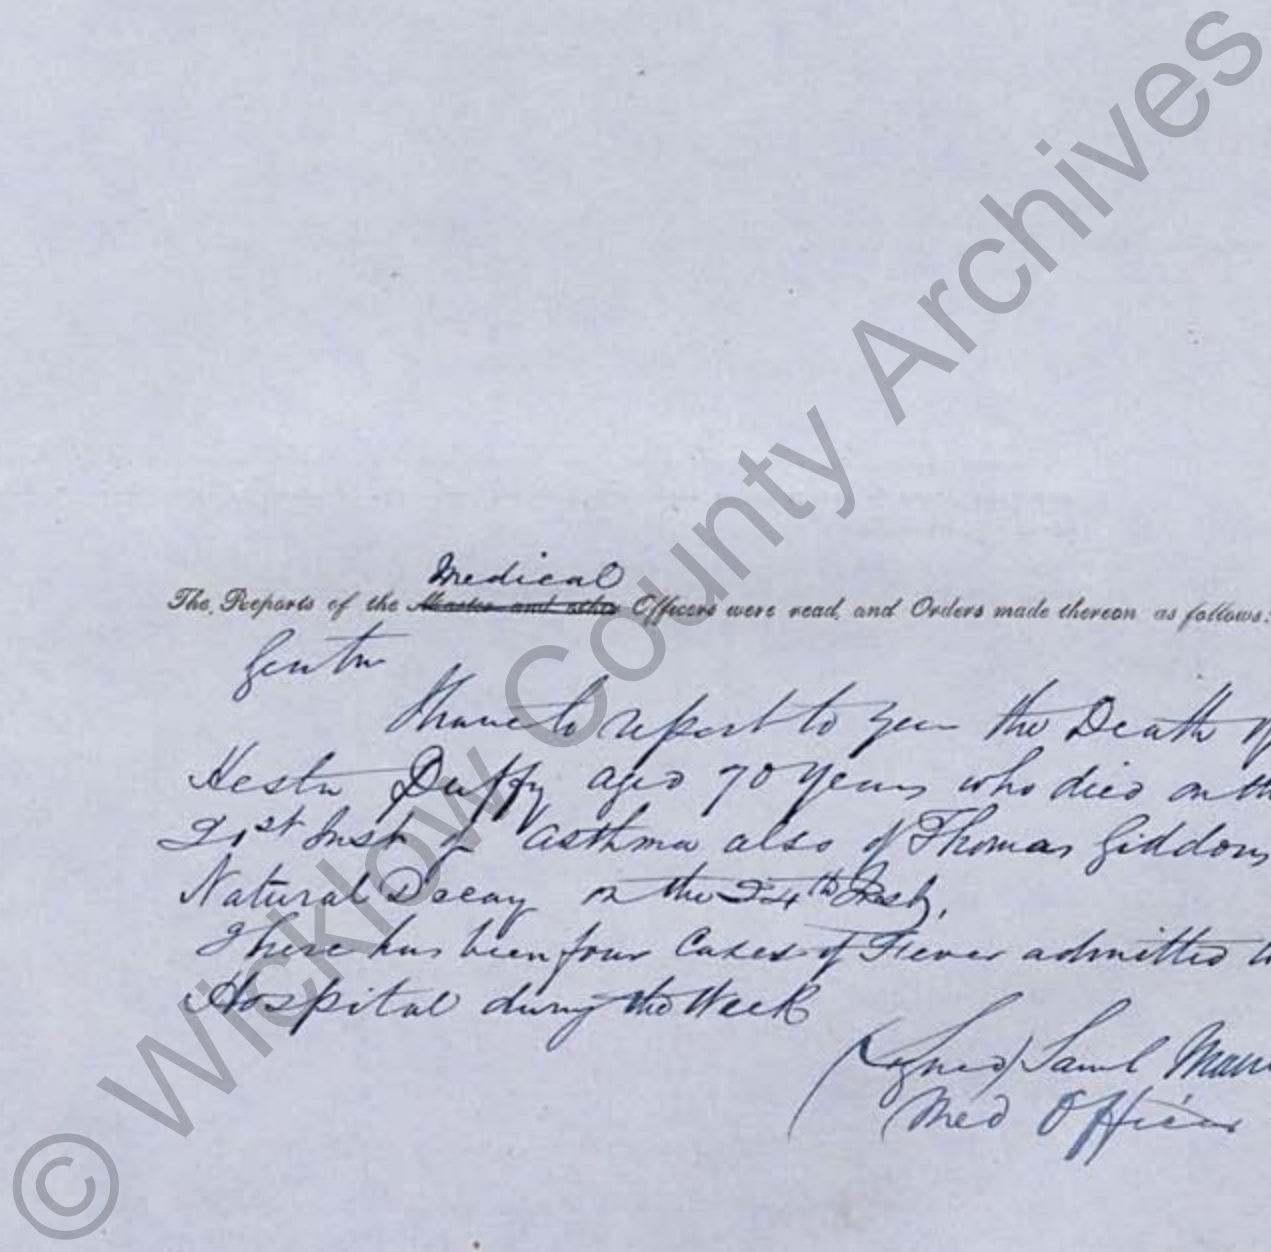 Medical
The Reports of the Master and other Officers were read, and Orders made thereon as follows:
Gentn
I have to report to you the Death of
Hester Duffy aged 70 Years who died on the
21st Inst of Asthma also of Thomas Giddons
Natural Decay on the 24th Inst,
There has been four Cases of Fever admitted to
Hospital during the Week
(Signed) Saml
Med Officer
© Wicklow County Archives